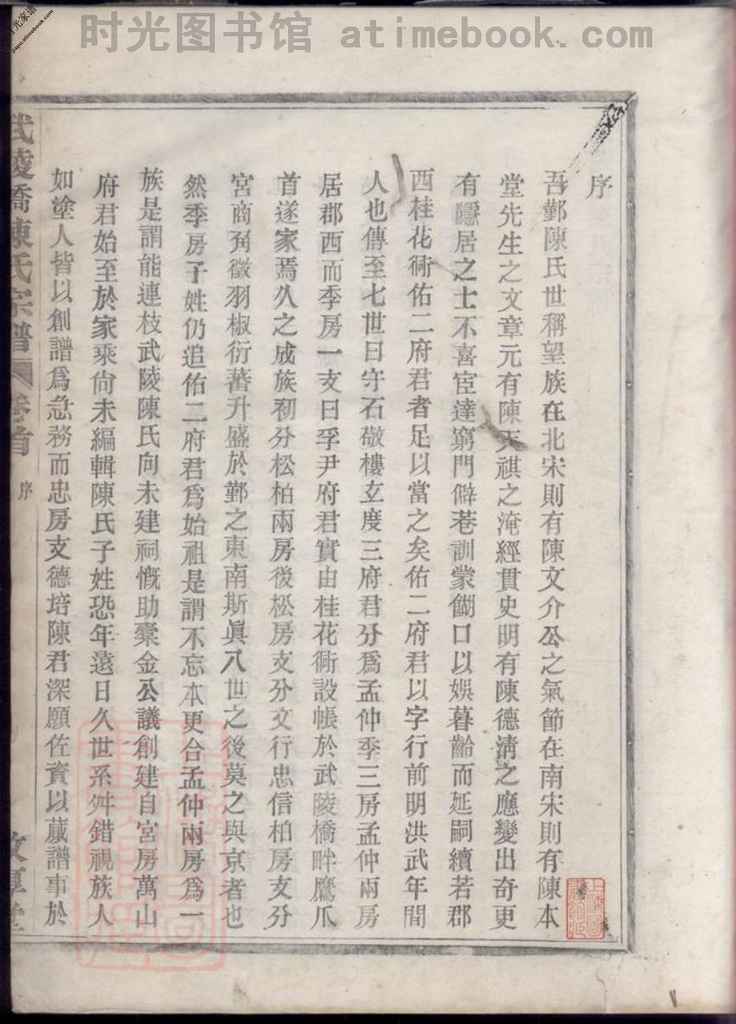 时光图书馆 atimebook.com
序
吾鄞陳氏世稱望族在北宋則有陳文介公之氣節在南宋則有陳本
堂先生之文章元有陳天祺之淹經貫史明有陳德清之應變出奇更
有隱居之士不喜宦達窮門僻巷訓蒙餬口以娛暮齡而延嗣續若郡
西桂花衕佑二府君者足以當之矣佑二府君以字行前明洪武年間
人也傳至七世曰守石敬樓玄度三府君分爲孟仲季三房孟仲兩房
居郡西而季房一支曰孚尹府君實由桂花衕設帳於武陵橋畔鷹爪
首遂家焉久之成族初分松柏兩房後松房支分文行忠信柏房支分
宮商角徵羽椒衍蕃升盛於鄞之東南斯眞八世之後莫之與京者也
然季房子姓仍追佑二府君爲始祖是謂不忘本更合孟仲兩房爲一
族是謂能連枝武陵陳氏向未建祠慨助橐金公議創建自宮房萬山
府君始至於家乘尙未編輯陳氏子姓恐年遠日久世系舛錯視族人
如塗人皆以創譜爲急務而忠房支德培陳君深願佐資以蕆譜事於
武陵橋陳氏宗譜 卷首 序